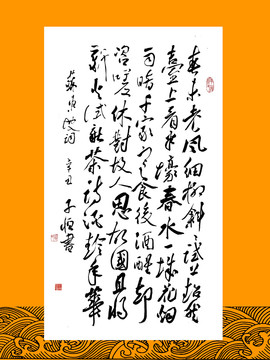 春未老风细柳斜斜试上超然
台上看半壕春水一城花烟
雨暗千家寒食后酒醒却
咨嗟休对故人思故国且将
新火试新茶诗酒趁年华
苏东坡词 辛丑 子恒书